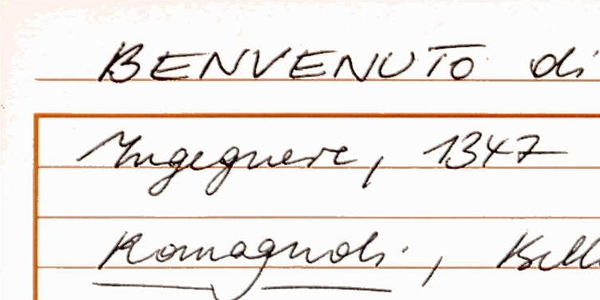 BENVENUTO di
Ingegnere, 1347
Romagnoli,